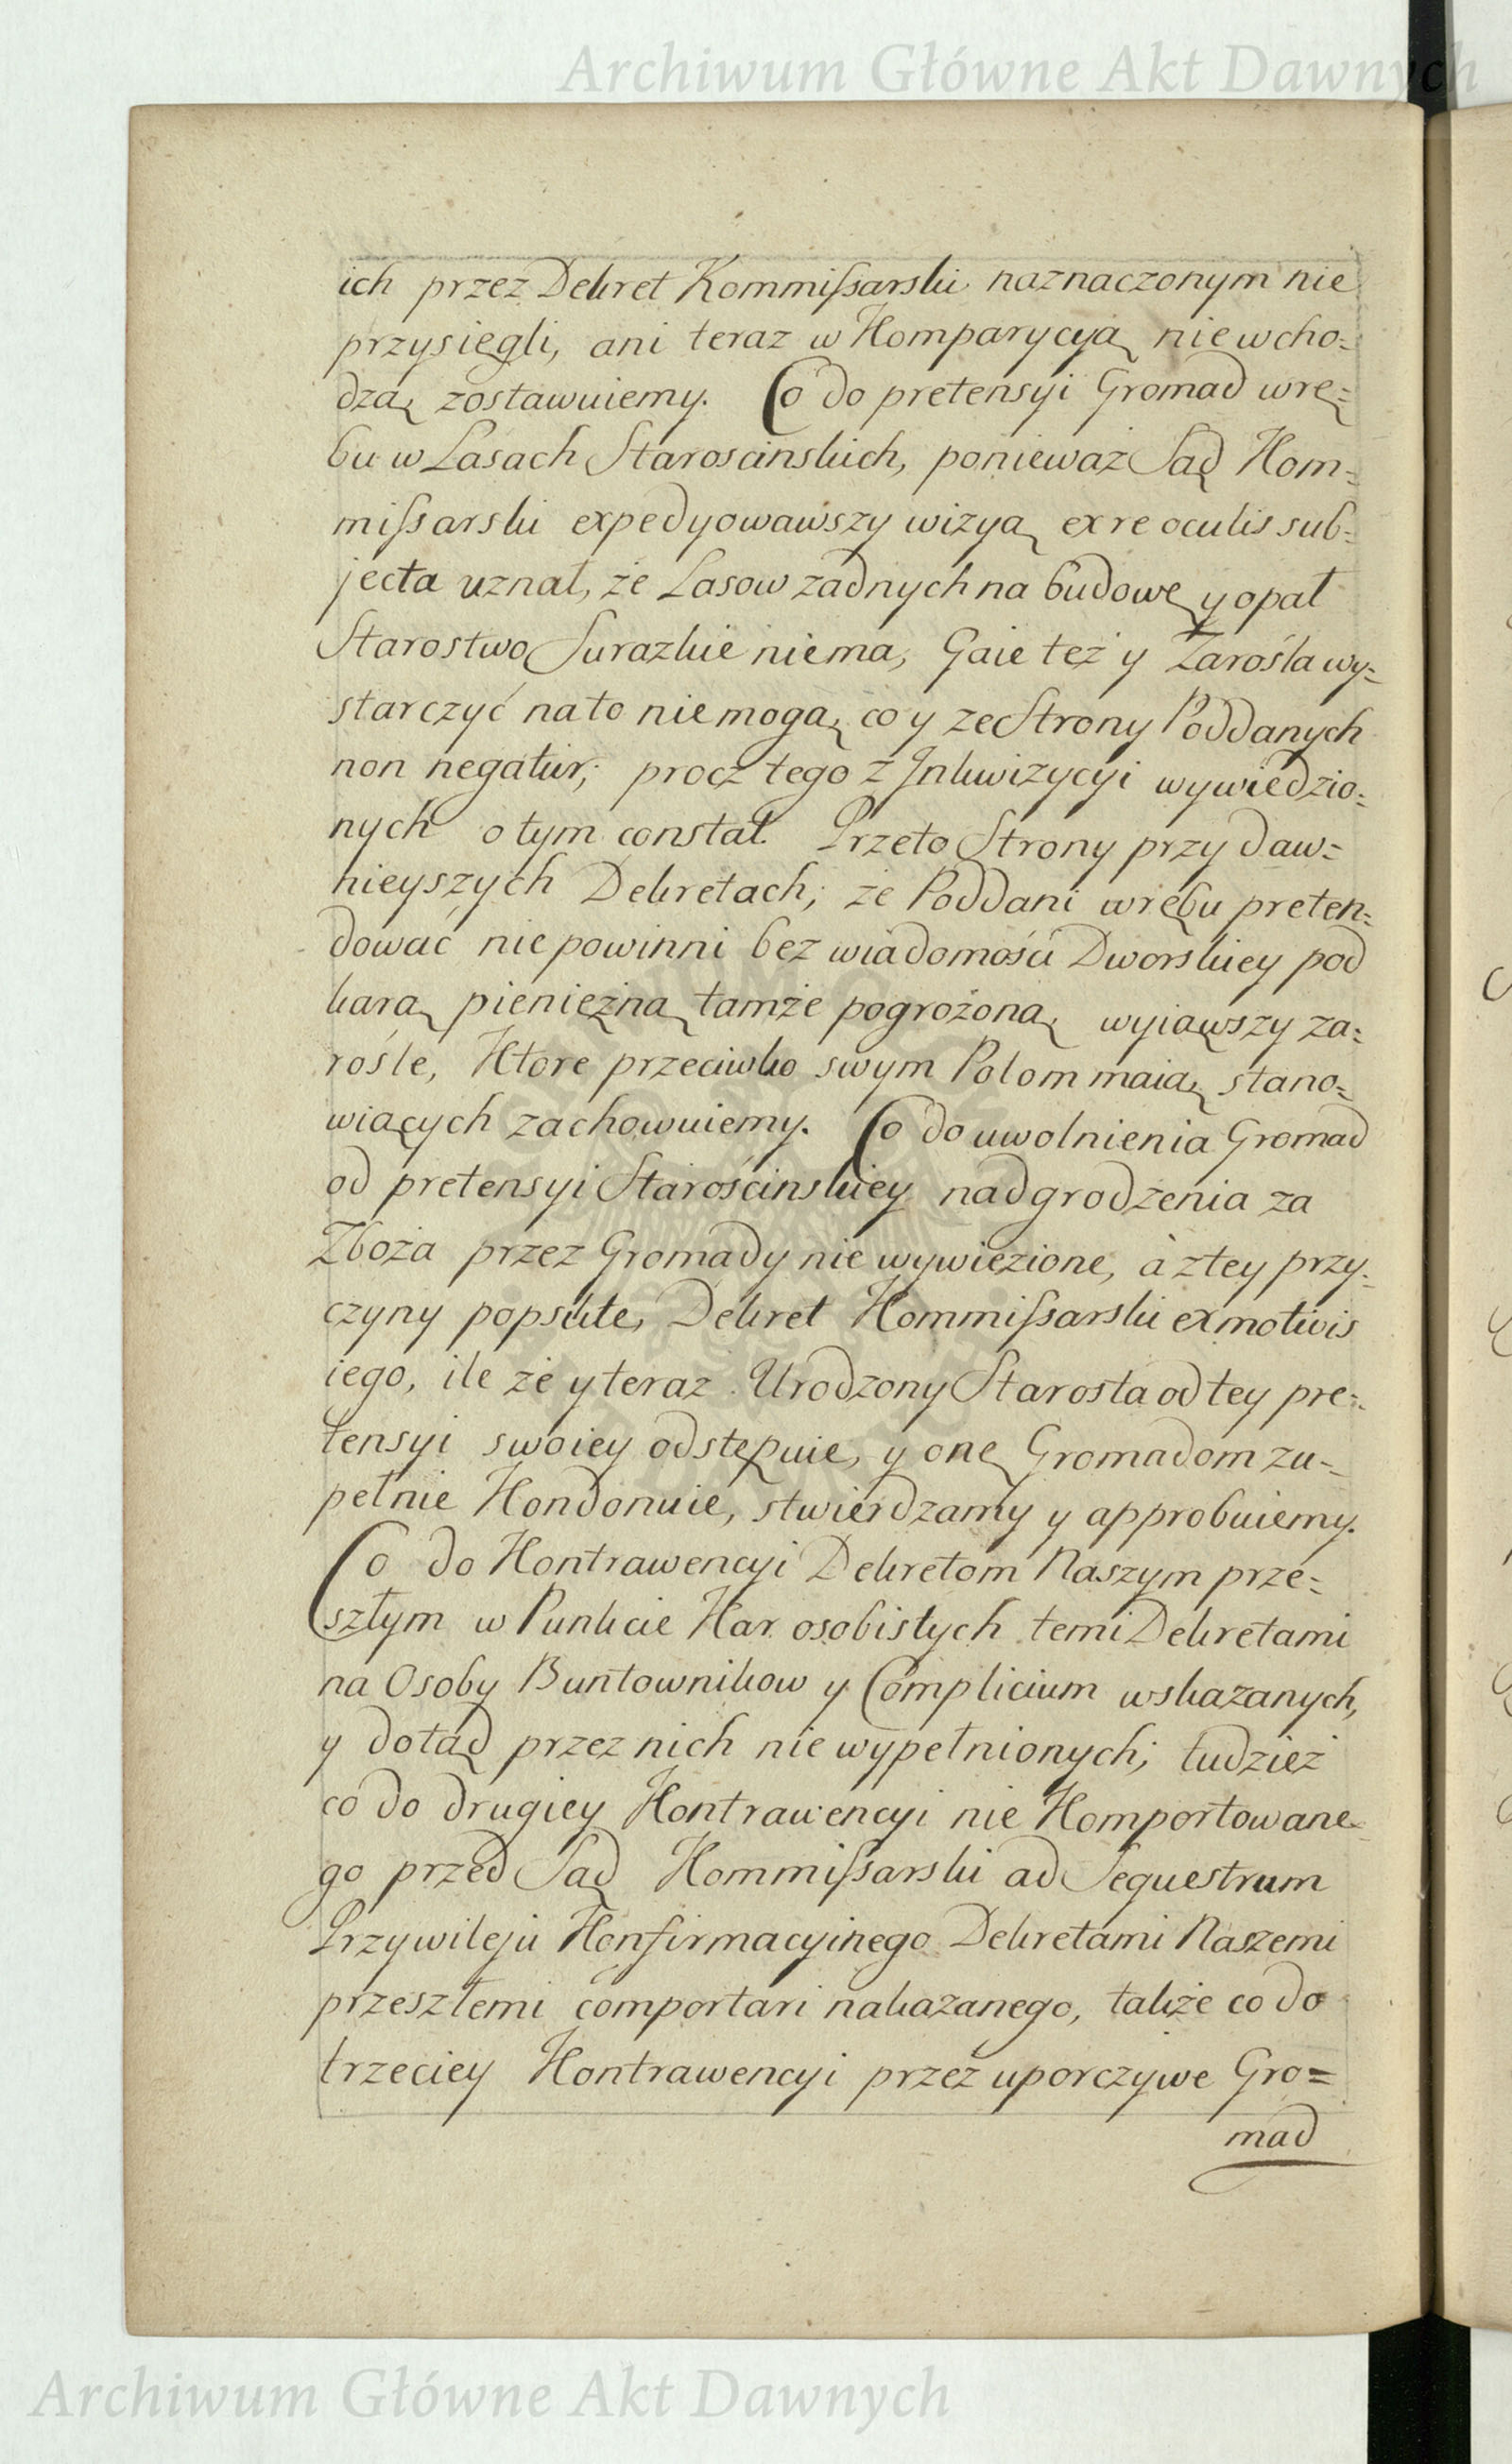 Archiwum Główne Akt Dawnych
ich przez Dekret Kommissarski naznaczonym nie
przysięgli, ani teraz w Komparycyą nie wcho=
dzą zostawuiemy. Co do pretensyi Gromad wrę=
bu w Lasach Staroscinskich, ponieważ Sąd Kom=
missarski expedyowawszy wizyą ex re oculis sub=
jecta uznał, że Lasow żadnych na budowę y opał
Starostwo Surazkie niema, Gaie też y Zarośla wy=
starczyć na to nie mogą, co y ze Strony Poddanych
non negatur; procz tego z Inkwizycyi wywiedzio=
nych o tym constat. Przeto Strony przy daw=
nieyszych Dekretach, że Poddani wrębu preten=
dować nie powinni bez wiadomości Dworskiey pod
karą pieniężną tamże pogrożoną, wyiąwszy za=
rośle, Ktore przeciwko swym Polom maią, stano=
wiących zachowuiemy. Co do uwolnienia Gromad
od pretensyi Starościnskiey nadgrodzenia za
Zboża przez Gromady nie wywiezione, à z tey przy=
czyny popsute, Dekret Kommissarski ex motivis
iego, ile że y teraz Urodzony Starosta od tey pre=
tensyi swoiey odstępuie, y onę Gromadom zu=
pełnie Kondonuie, stwierdzamy y approbuiemy.
Co do Kontrawencyi Dekretom Naszym prze=
szłym w Punkcie Kar osobistych temi Dekretami
na Osoby Buntownikow y Complicium wskazanych,
y dotąd przez nich nie wypełnionych; tudzież
co do drugiey Kontrawencyi nie Komportowane=
go przed Sąd Kommissarski ad Sequestrum
Przywileju Konfirmacyinego Dekretami Naszemi
przeszłemi comportari nakazanego, także co do
trzeciey Kontrawencyi przez uporczywe Gro=
mad
Archiwum Główne Akt Dawnych